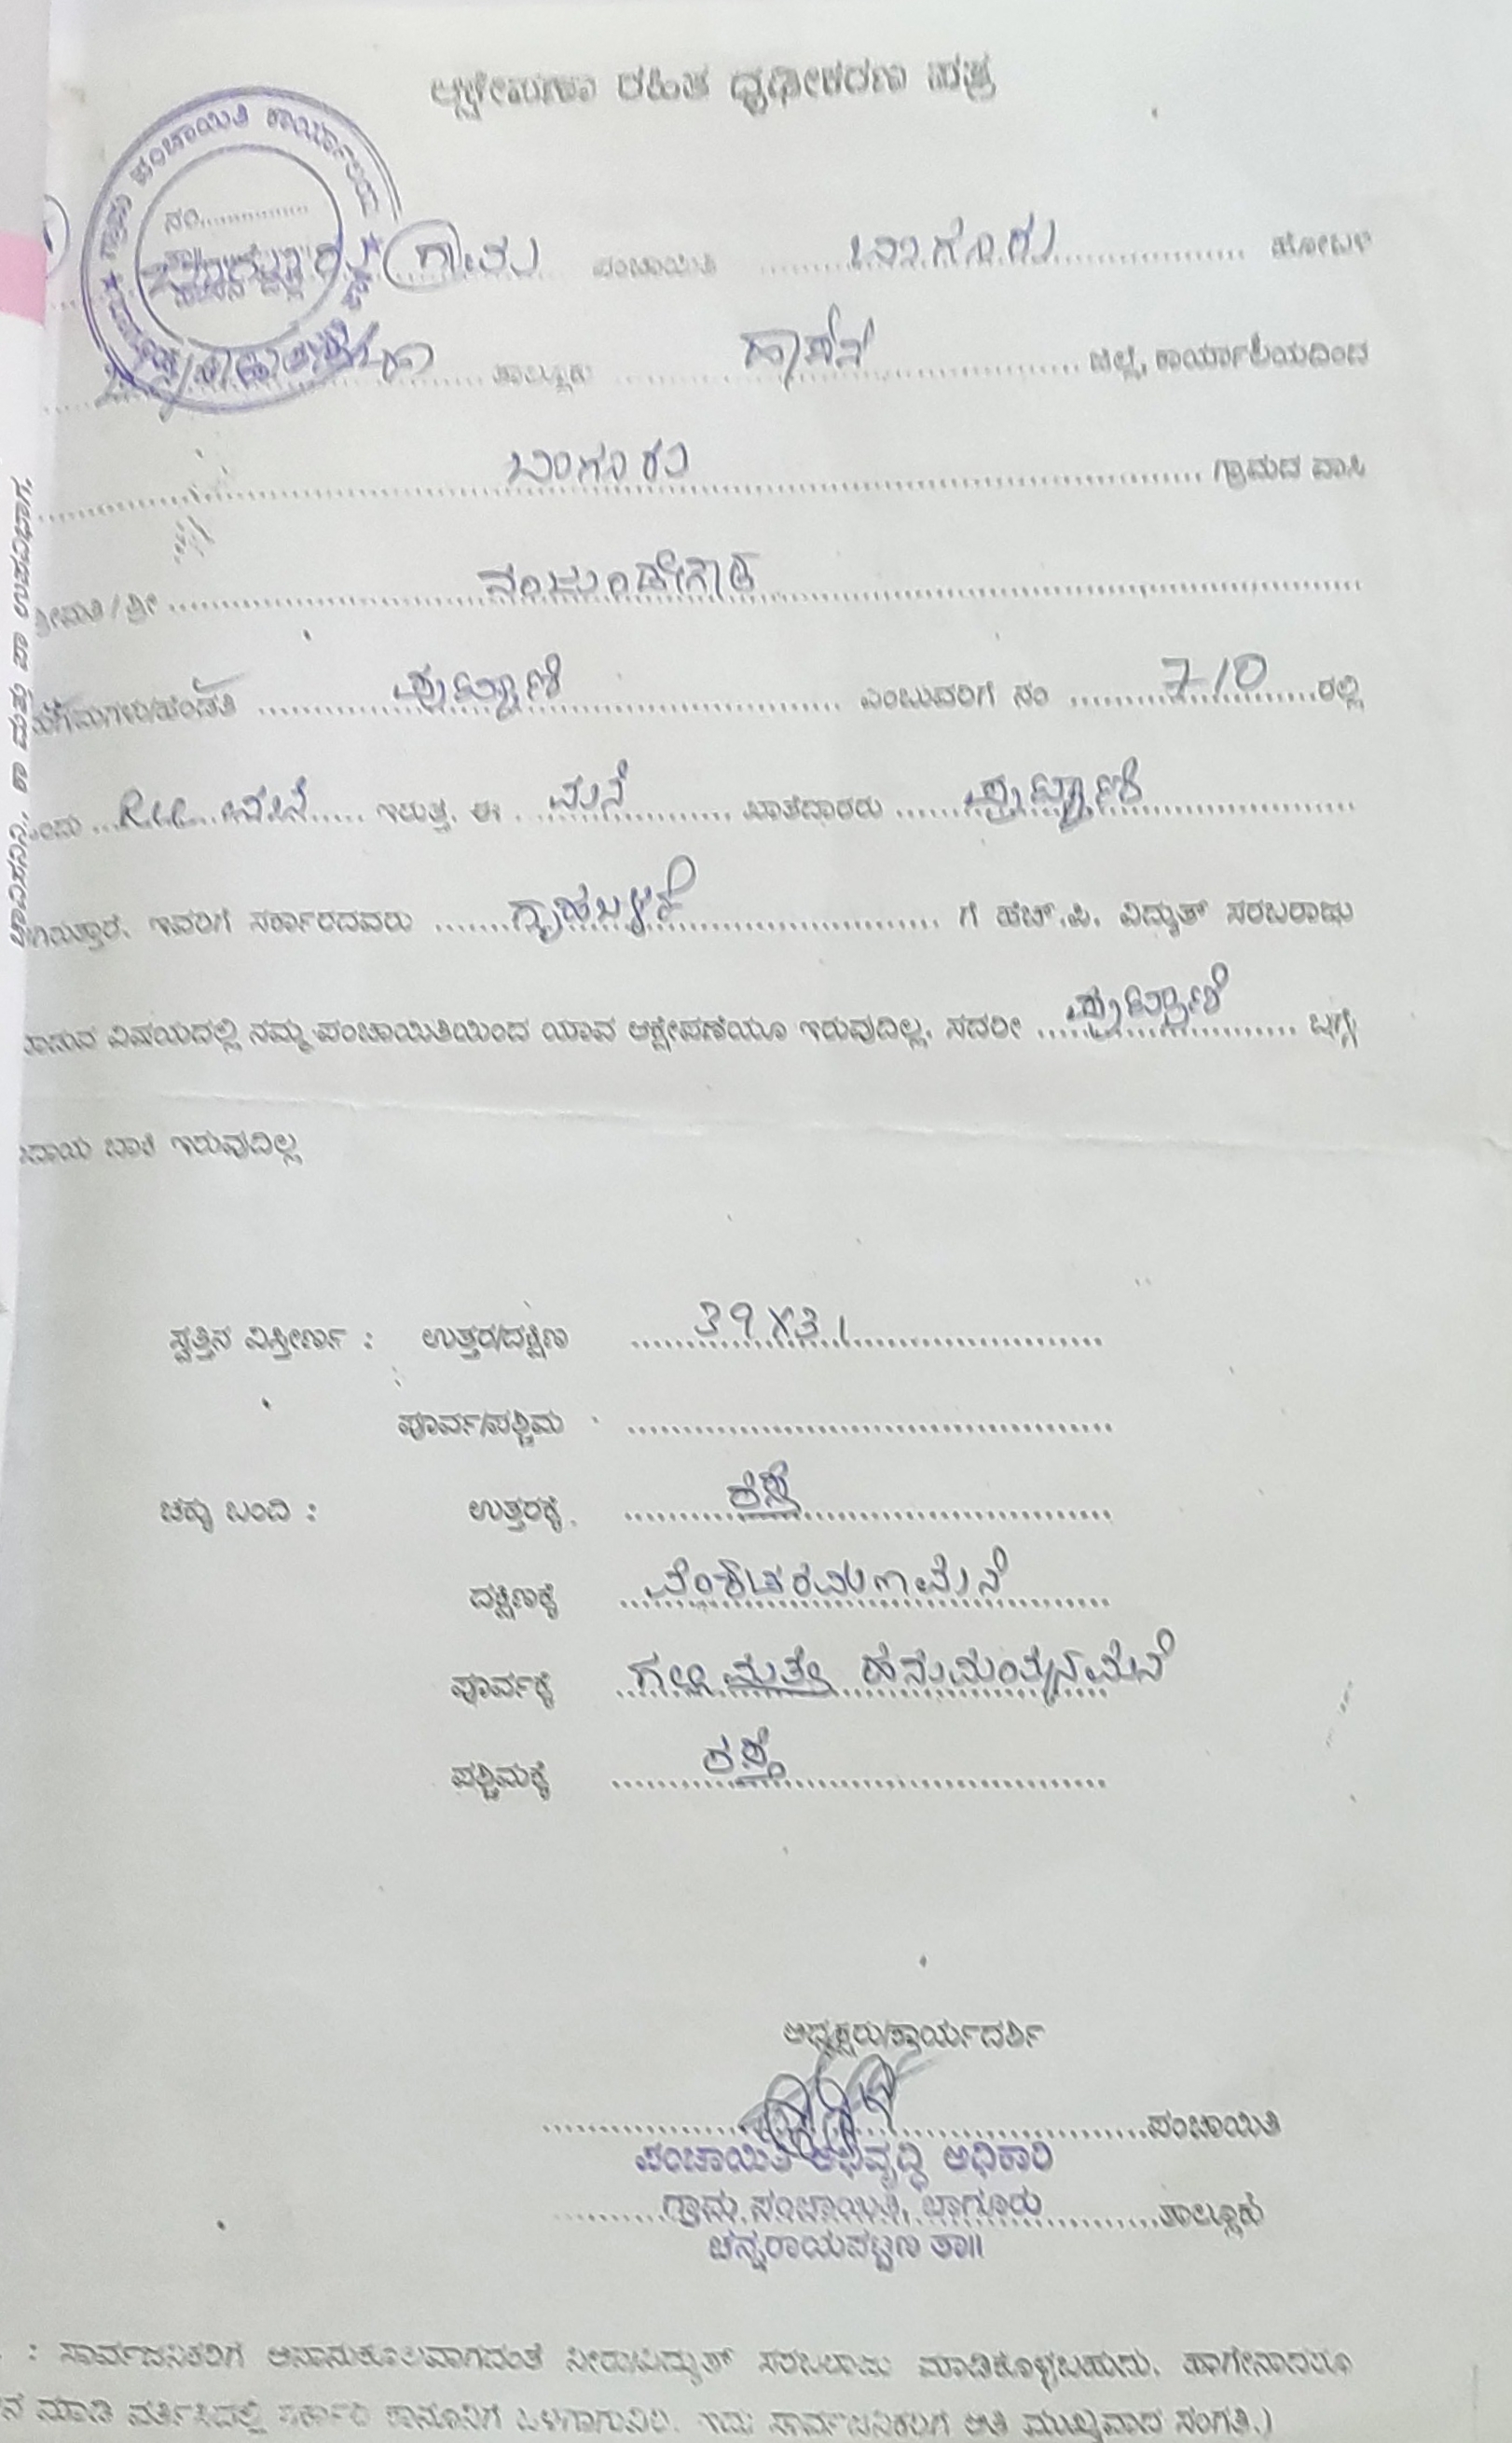 ಆಕ್ಷೇಪಣಾ ರಹಿತ ಧೃಢೀಕರಣ ಪತ್ರ
ಗ್ರಾಮ ಪಂಚಾಯಿತಿ ಕಾರ್ಯಾಲಯ
ನಂ................
ಗ್ರಾಮ ಪಂಚಾಯಿತಿ ಬಾಗೂರು ಹೋಬಳಿ
ತಾಲ್ಲೂಕು ಹಾಸನ ಜಿಲ್ಲೆ, ಕಾರ್ಯಾಲಯದಿಂದ
ಬಾಗೂರು ಗ್ರಾಮದ ವಾಸಿ
ಶ್ರೀಮತಿ/ಶ್ರೀ ನಂಜುಂಡೇಗೌಡ
ಮಗ/ಮಗಳು/ಹೆಂಡತಿ ಪುಟ್ಟಾಣಿ ಎಂಬುವರಿಗೆ ನಂ 710 ರಲ್ಲಿ
ಒಂದು RCC ಮನೆ ಇರುತ್ತೆ. ಈ ಮನೆ ಖಾತೆದಾರರು ಪುಟ್ಟಾಣಿ
ಆಗಿರುತ್ತಾರೆ. ಇವರಿಗೆ ಸರ್ಕಾರದವರು ಗೃಹಬಳಕೆ ಗೆ ಹೆಚ್.ಪಿ. ವಿದ್ಯುತ್ ಸರಬರಾಜು
ಮಾಡುವ ವಿಷಯದಲ್ಲಿ ನಮ್ಮ ಪಂಚಾಯಿತಿಯಿಂದ ಯಾವ ಆಕ್ಷೇಪಣೆಯೂ ಇರುವುದಿಲ್ಲ. ಸದರೀ ಪುಟ್ಟಾಣಿ ಬಗ್ಗೆ
ಕಂದಾಯ ಬಾಕಿ ಇರುವುದಿಲ್ಲ
ಸ್ವತ್ತಿನ ವಿಸ್ತೀರ್ಣ : ಉತ್ತರ/ದಕ್ಷಿಣ 39X31
ಪೂರ್ವ/ಪಶ್ಚಿಮ
ಚಕ್ಕು ಬಂದಿ : ಉತ್ತರಕ್ಕೆ ರಸ್ತೆ
ದಕ್ಷಿಣಕ್ಕೆ ವೆಂಕಟರಮಣ ಮನೆ
ಪೂರ್ವಕ್ಕೆ ಗಲ್ಲಿ ಮತ್ತೇ ಹನುಮಂತನ ಮನೆ
ಪಶ್ಚಿಮಕ್ಕೆ ರಸ್ತೆ
ಅಧ್ಯಕ್ಷರು/ಕಾರ್ಯದರ್ಶಿ
ಪಂಚಾಯಿತಿ
ಪಂಚಾಯಿತಿ ಅಭಿವೃದ್ಧಿ ಅಧಿಕಾರಿ
ಗ್ರಾಮ ಪಂಚಾಯಿತಿ, ಬಾಗೂರು ತಾಲ್ಲೂಕು
ಚನ್ನರಾಯಪಟ್ಟಣ ತಾ॥
: ಸಾರ್ವಜನಿಕರಿಗೆ ಅನಾನುಕೂಲವಾಗದಂತೆ ನೀರು/ವಿದ್ಯುತ್ ಸರಬರಾಜು ಮಾಡಿಕೊಳ್ಳಬಹುದು. ಹಾಗೇನಾದರೂ
ಮಾಡಿ ವರ್ತಿಸಿದಲ್ಲಿ ಸರ್ಕಾರಿ ಕಾನೂನಿಗೆ ಒಳಗಾಗುವಿರಿ. ಇದು ಸಾರ್ವಜನಿಕರಿಗೆ ಅತಿ ಮುಖ್ಯವಾದ ಸಂಗತಿ.)